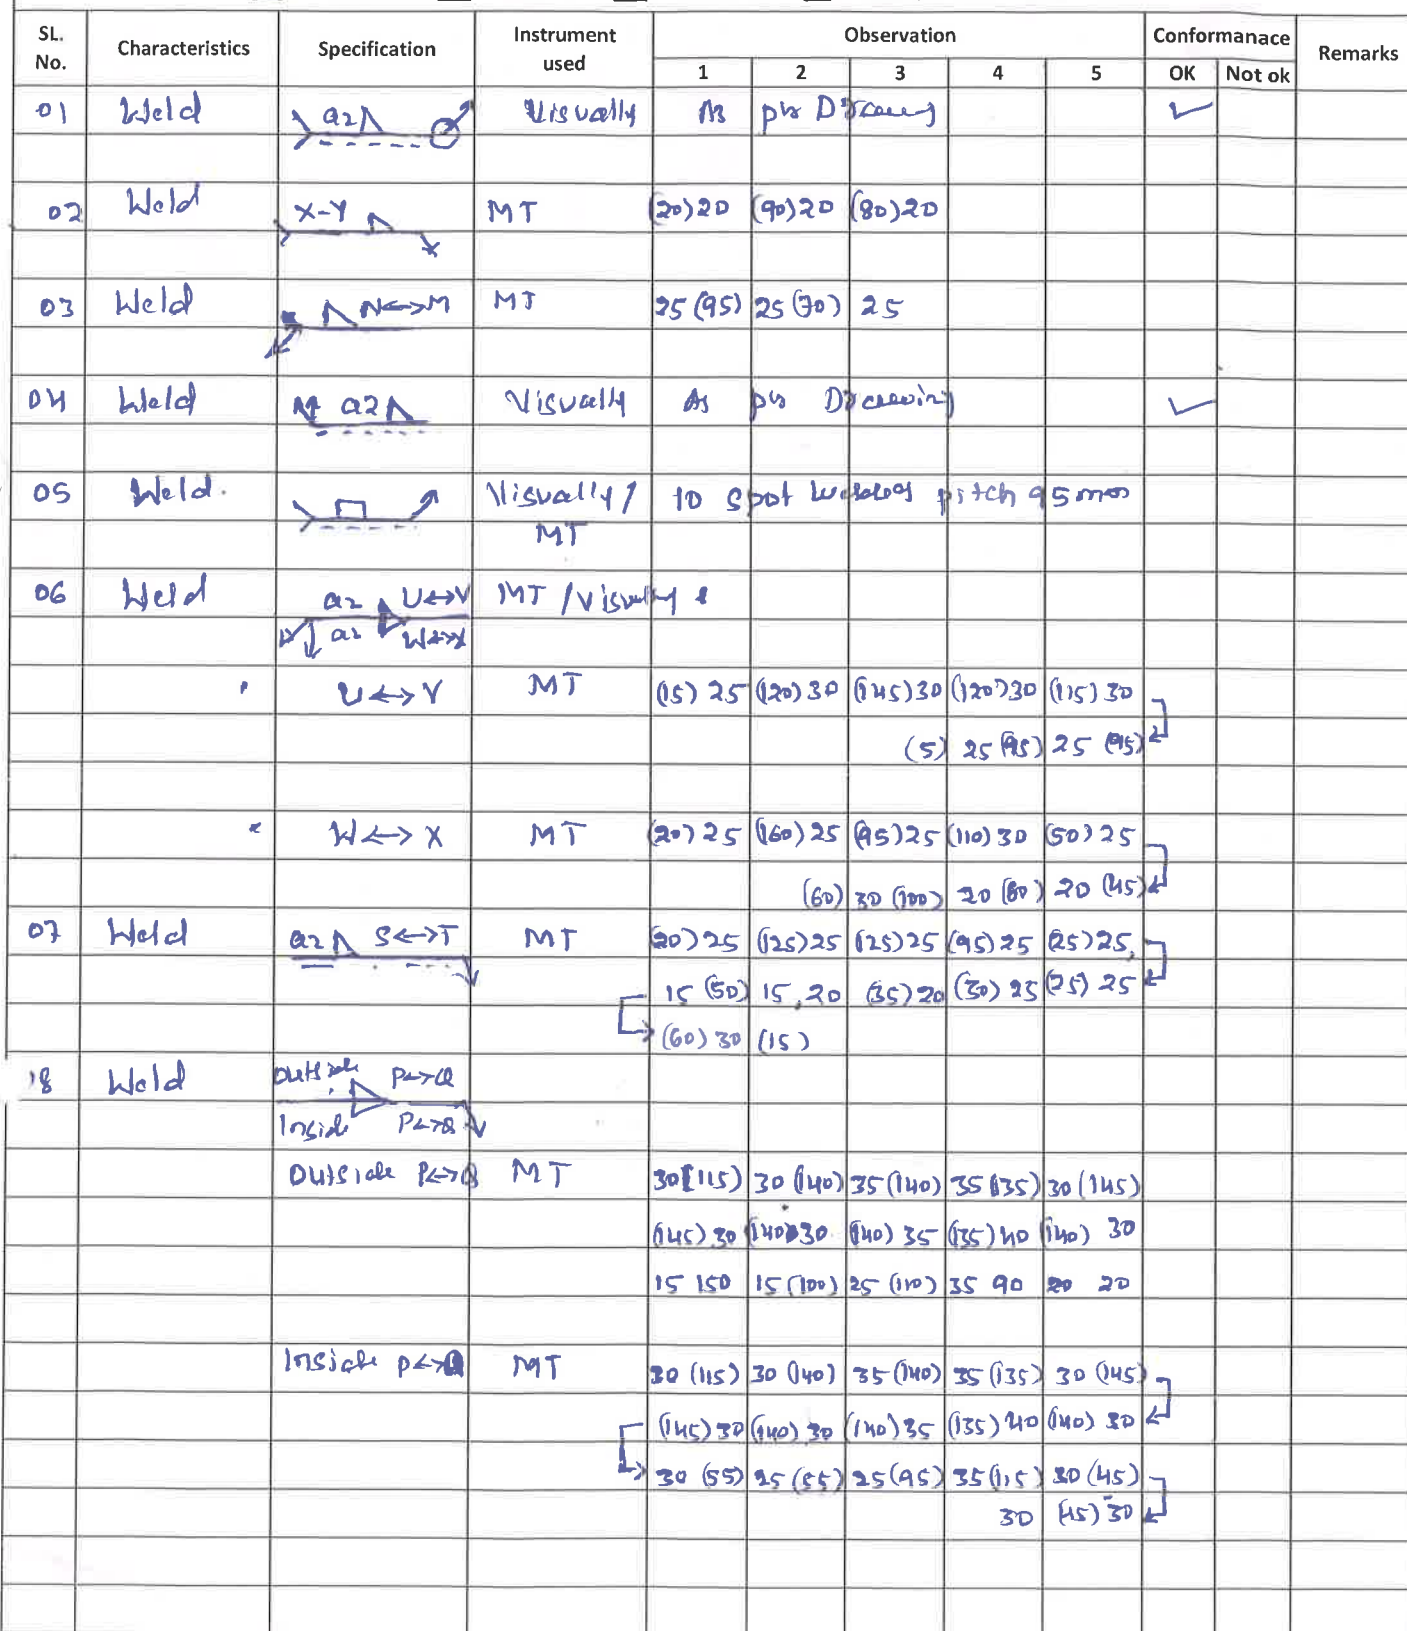 SL. No. Characteristics Specification Instrument used Observation Conformanace Remarks
1 2 3 4 5 OK Not ok
01 Weld a2 Visually As per
02 Weld X-Y MT (20)20 (90)20 (80)20
03 Weld N↔M MT 25(95) 25(70) 25
04 Weld a2 Visually As per
05 Weld. Visually/ 10 Spot pitch 95mm
MT
06 Weld a2 U↔V MT/Visually
a2 W↔X
U↔V MT (15)25 (120)30 (145)30 (120)30 (115)30
(5) 25(95) 25(95)
W↔X MT (20)25 (160)25 (95)25 (110)30 (50)25
(60) 30(100) 20(80) 20(45)
07 Weld a2 S↔T MT (20)25 (125)25 (125)25 (95)25 (25)25,
15(50) 15,20 (35)20 (30)25 (25)25
(60)30 (15)
8 Weld Outside P↔Q
Inside P↔Q
Outside P↔Q MT 30(115) 30(140) 35(140) 35(135) 30(145)
(145)30 (140)30 (140)35 (135)40 (140) 30
15 150 15(100) 25(110) 35 90 20 20
Inside P↔Q MT 30(115) 30(140) 35(140) 35(135) 30(145)
(145)30 (140)30 (140)35 (135)40 (140)30
30(55) 25(55) 25(95) 35(115) 30(45)
30 (45)30